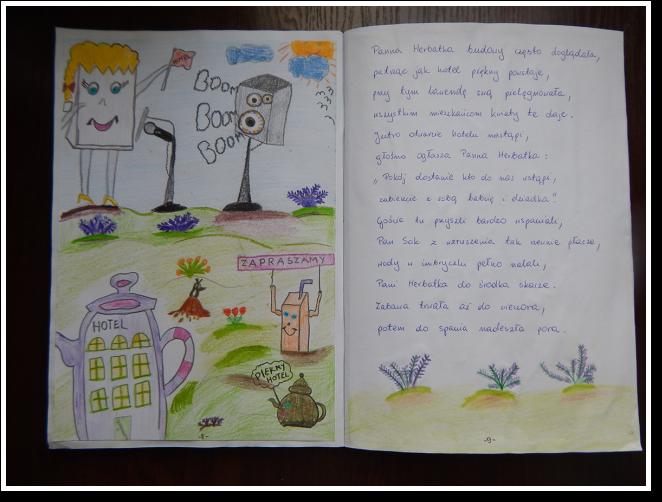 BOOM
BOOM
BOOM
ZAPRASZAMY
HOTEL
PIĘKNY
HOTEL
-8-
Panna Herbatka budowy często doglądała,
patrząc jak hotel piękny powstaje,
przy tym lawendę swą pielęgnowała,
wszystkim mieszkańcom kwiaty te daje.
Jutro otwarcie hotelu nastąpi,
głośno ogłasza Panna Herbatka:
„Pokój dostanie kto do nas wstąpi,
zabierzcie z sobą babcię i dziadka".
Goście tu przyszli bardzo wspaniali,
Pan Sok z wzruszenia tak rzewnie płacze,
wody w imbryczku pełno nalali,
Pani Herbatka do środka skacze.
Zabawa trwała aż do wieczora,
potem do spania nadeszła pora.
-9-